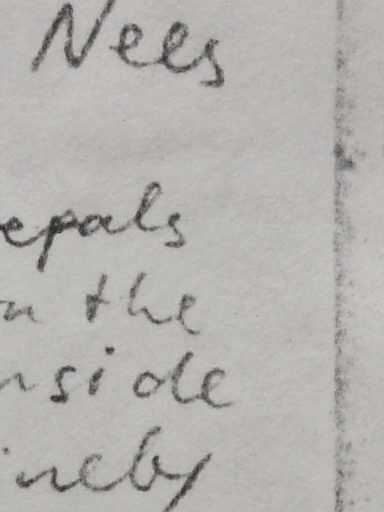 Nees
epals
n the
nside